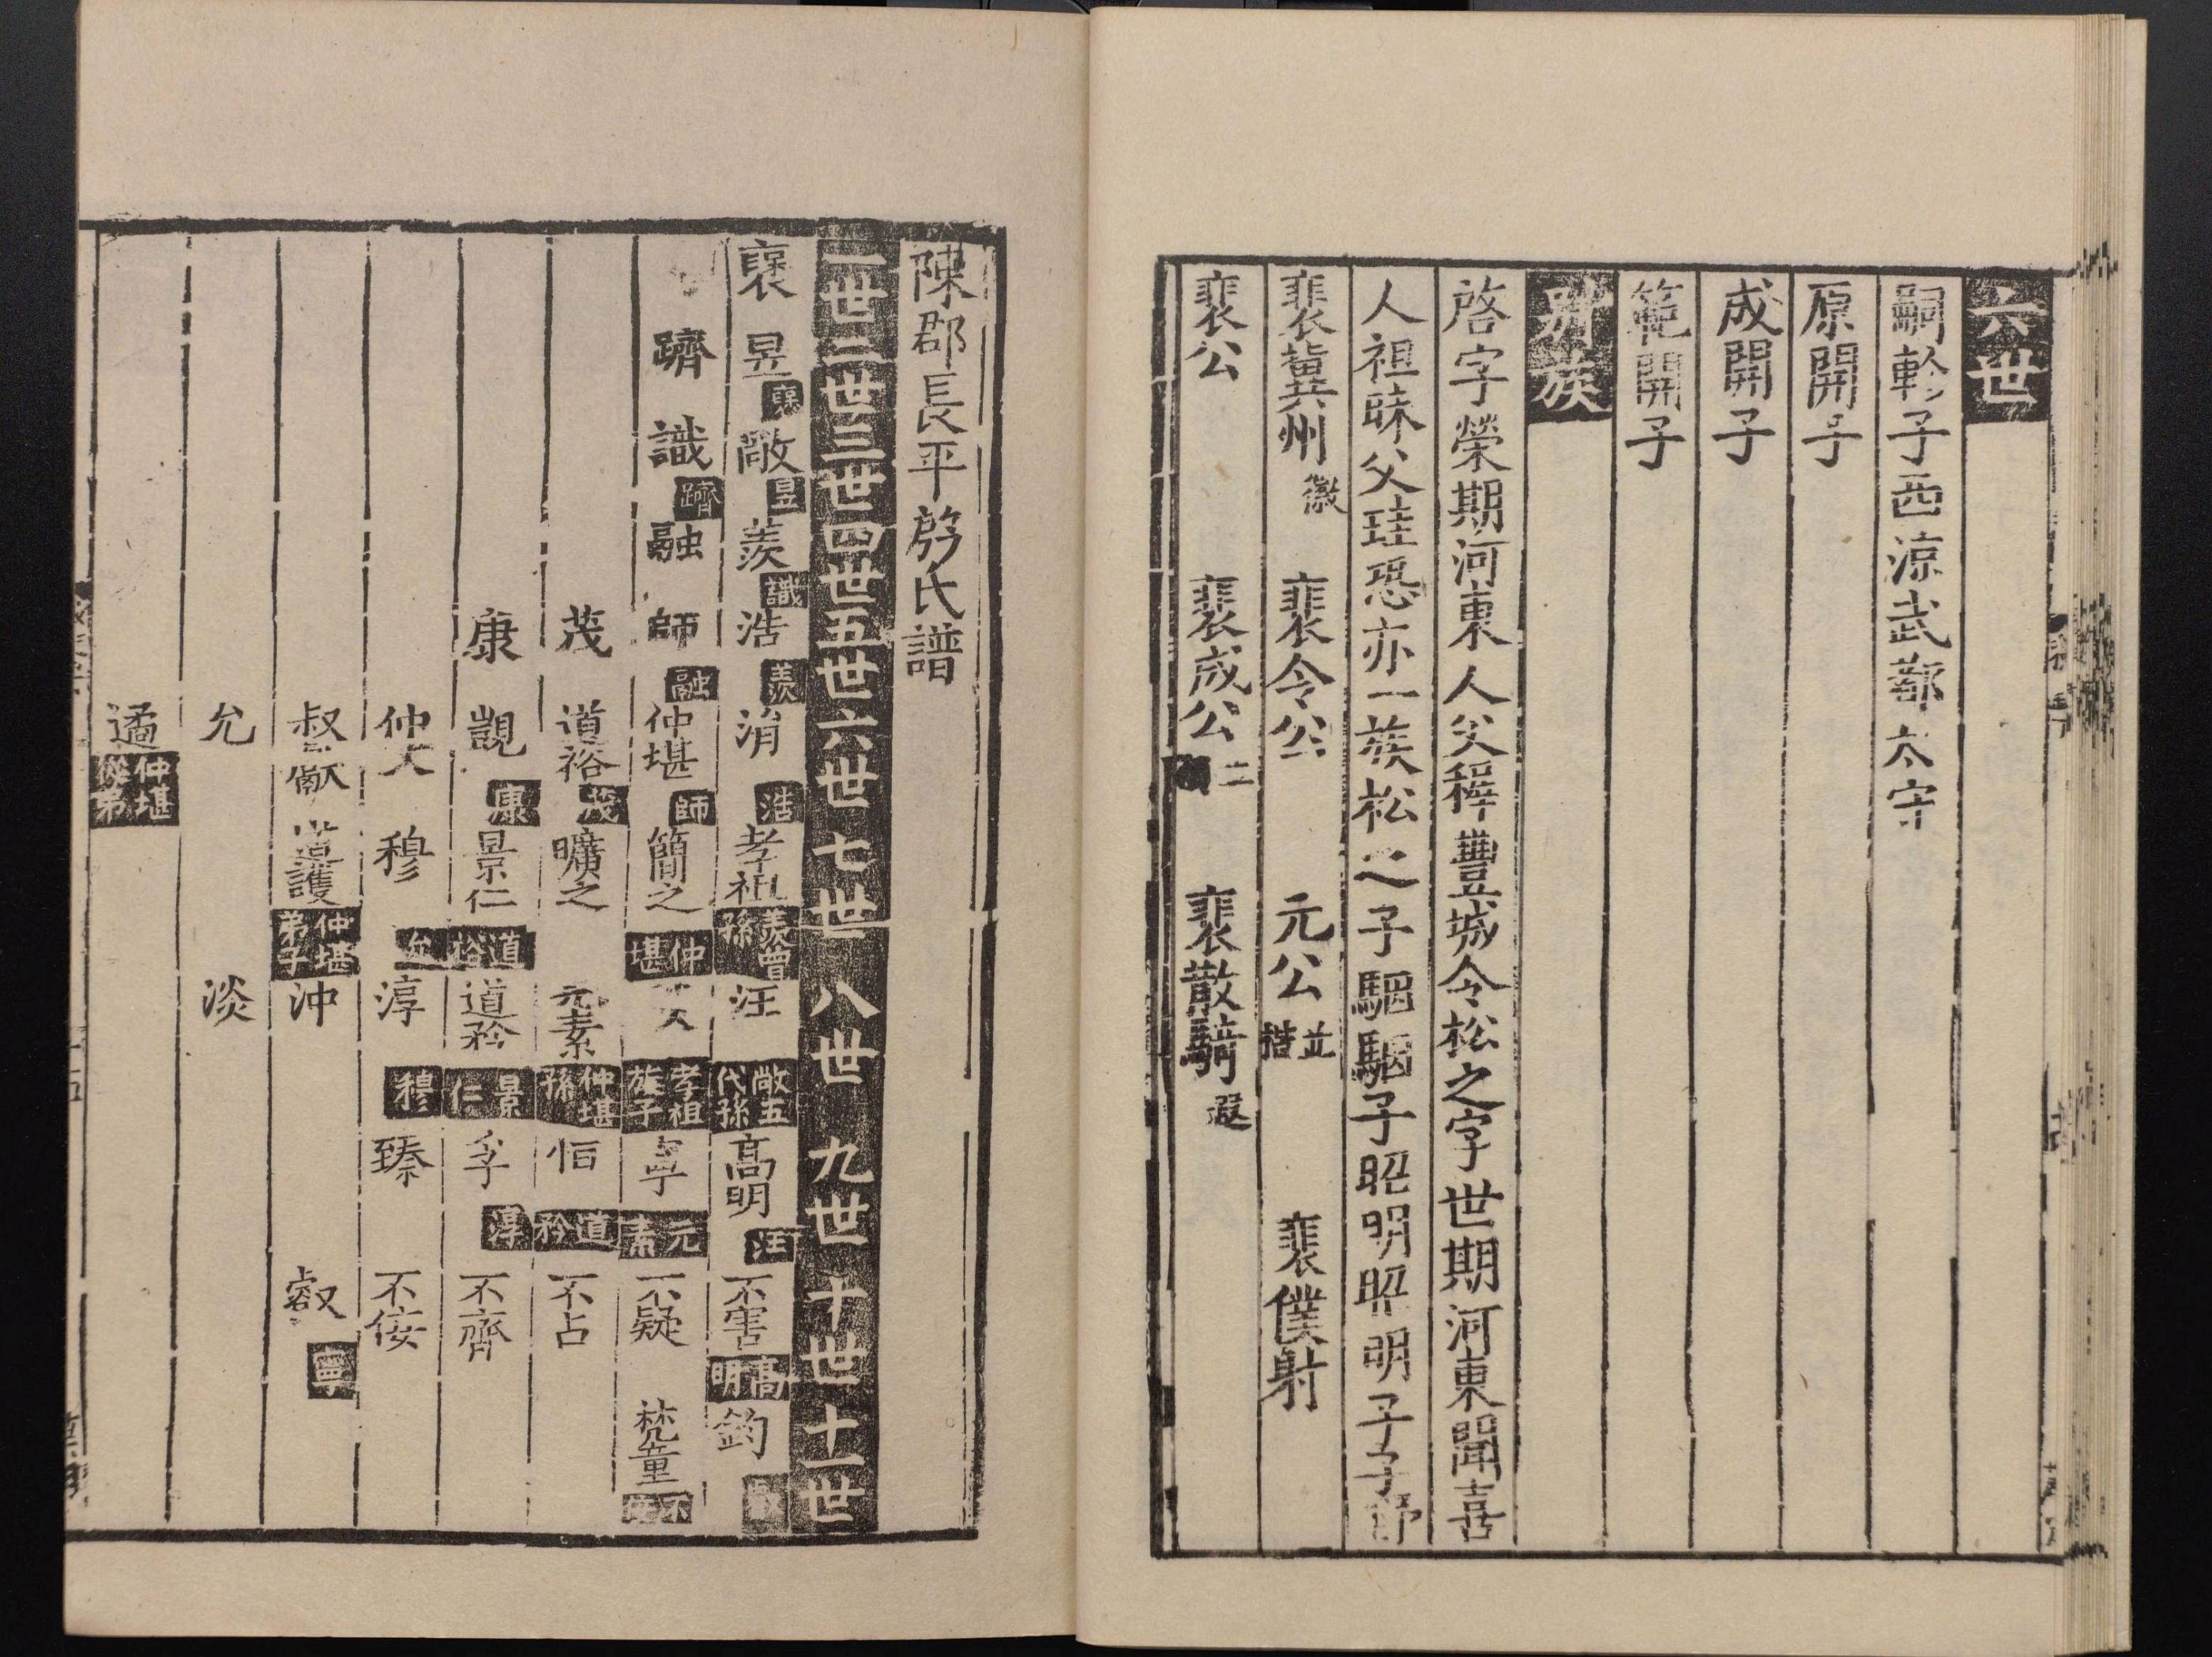 六世
嗣軫子西涼武都太守
原開子
成開子
範開子
別族
啓字榮期河東人父稺豐城令松之字世期河東聞喜
人祖昧父珪恐亦一族松之子駰駰子昭明昭明子子野
裴冀州徽 裴令公 元公並楷 裴僕射
裴公 裴成公二 裴散騎遐
陳郡長平殷氏譜
一世二世三世四世五世六世七世八世九世十世十一世
襃 昱襃 敞昱 羨識 浩羨 涓浩 孝祖羨曾孫 汪敞五代孫 高明汪 不害高明 鈞叡
躋 識躋 融 師融 仲堪師 簡之仲堪 孝祖族子 寧元素 不疑 梵童不害
茂 道裕茂 曠之 元素仲堪孫 恒道矜 不占
康 覬康 景仁道裕 道矜景仁 孚淳 不齊
仲文 穆允 淳穆 臻 不佞
叔獻 道護仲堪弟子 沖 叡寧
允 淡
遹仲堪從弟